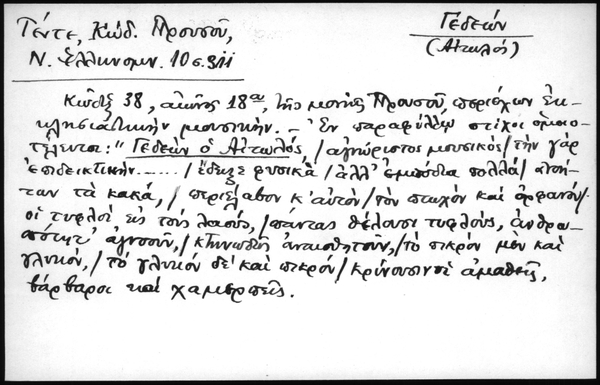 Τέντε, Κώδ. Προυσοῦ,
Ν. Ἑλληνομν. 10 σ. 311
Γεδεών
(Αἰτωλός)
Κώδιξ 38, αἰῶνος 18ου, τῆς μονῆς Προυσοῦ, περιέχων Ἐκ-
κλησιαστικὴν μουσικήν. – Ἐν παραφύλλῳ στίχοι ὁμοιο-
τέλευτοι: "Γεδεὼν ὁ Αἰτωλός, / ἀγνώριστος μουσικὸς / τὴν γὰρ
ἐπιδεικτικὴν...... / ἔδειξε φυσικὰ / ἀλλ' ἐμπόδια πολλὰ /
των τὰ κακά, / κ' αὐτὸν / τὸν πτωχὸν καὶ ὀρφανόν /
οἱ τυφλοὶ εὖ τοὺς λαούς, / πάντας θέλουσι τυφλούς, ἀνθρω-
πότητ' ἀγνοοῦν, / κτηνωδῶς ἀναισθητοῦν, / τὸ πικρὸν μὲν καὶ
γλυκόν, / τὸ γλυκὸν δὲ καὶ πικρόν / κρίνουσιν οἱ ἀμαθεῖς,
βάρβαροι καὶ χαμερπεῖς.